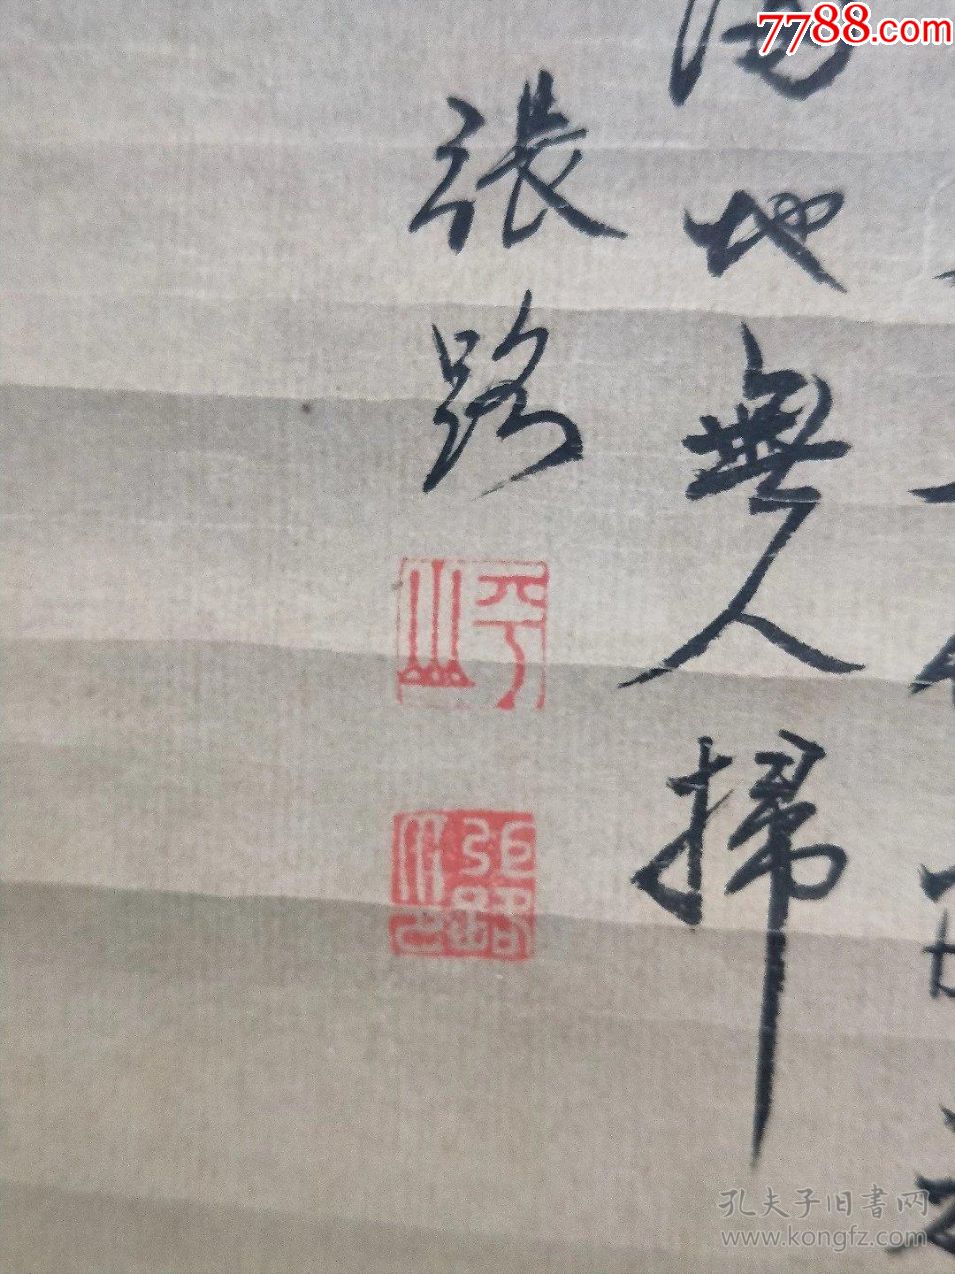 7788.com
地無人掃
張路
平山
張路印
孔夫子旧書网
www.kongfz.com